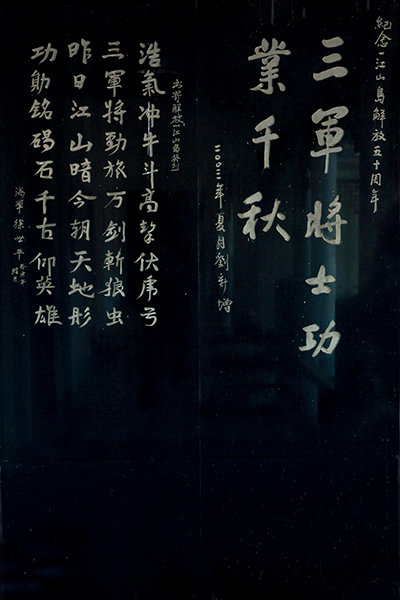 紀念一江山島解放五十周年
三軍將士功
業千秋
二〇〇三年夏月劉
書寄解放一江山島
浩氣沖牛斗高擎伏虎弓
三軍將勁旅万剑斬狼虫
昨日江山暗今朝天地彤
功勛銘碣石千古仰英雄
徐世平